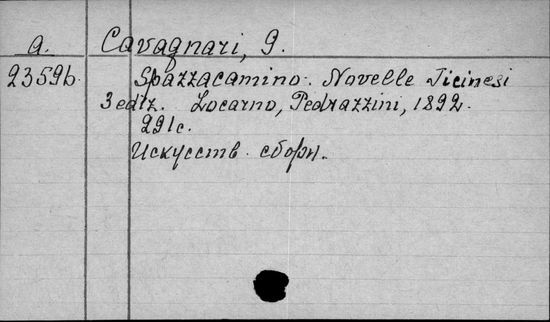 a. Cavagnari, G.
23596 Spazzacamino. Novelle Ticinesi
3 ediz. Locarno, Pedrazzini, 1892.
291 с.
Искусств. сборн.